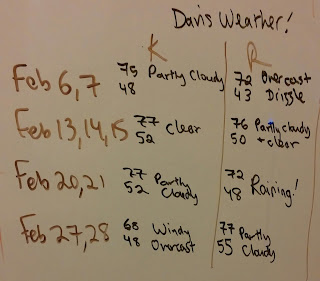 Davis Weather!
K R
Feb 6,7 75 Partly Cloudy 72 Overcast
48 43 Drizzle
Feb 13,14,15 77 Clear 76 Partly cloudy
52 50 + clear
Feb 20,21 77 Partly 72 Raining!
52 Cloudy 48
Feb 27,28 68 Windy 77 Partly
48 Overcast 55 Cloudy